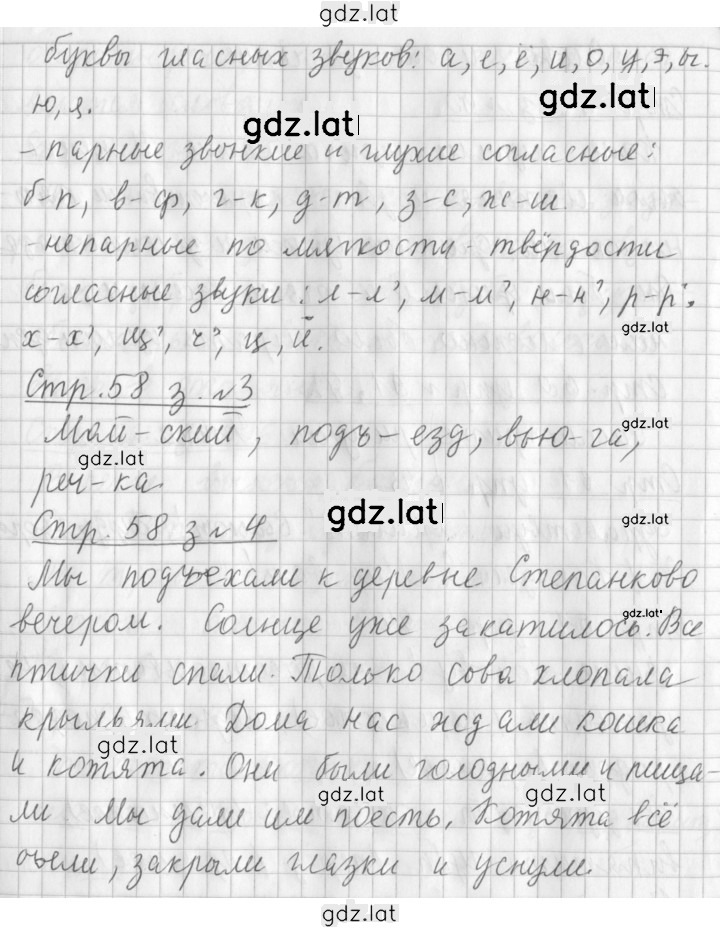 gdz.lat
буквы гласных звуков: а, е, ё, и, о, у, э, ы.
ю, я.
gdz.lat
gdz.lat
- парные звонкие и глухие согласные:
б-п, в-ф, г-к, д-т, з-с, ж-ш.
-непарные по мягкости-твёрдости
согласные звуки: л-л', м-м', н-н', р-р'.
х-х', щ', ч', ц, й.
gdz.lat
Стр. 58 з. №3
Май-ский, подъ-езд, вью-га,
gdz.lat
gdz.lat
реч-ка.
Стр. 58 з №4
gdz.lat
gdz.lat
Мы подъехали к деревне Степанково
вечером. Солнце уже закатилось. Все
gdz.lat
птички спали. Только сова хлопала
крыльями Дома нас ждали кошка
gdz.lat
и котята. Они были голодными и пища-
gdz.lat
gdz.lat
ли Мы дали им поесть. Котята всё
съели, закрыли глазки и уснули.
gdz.lat